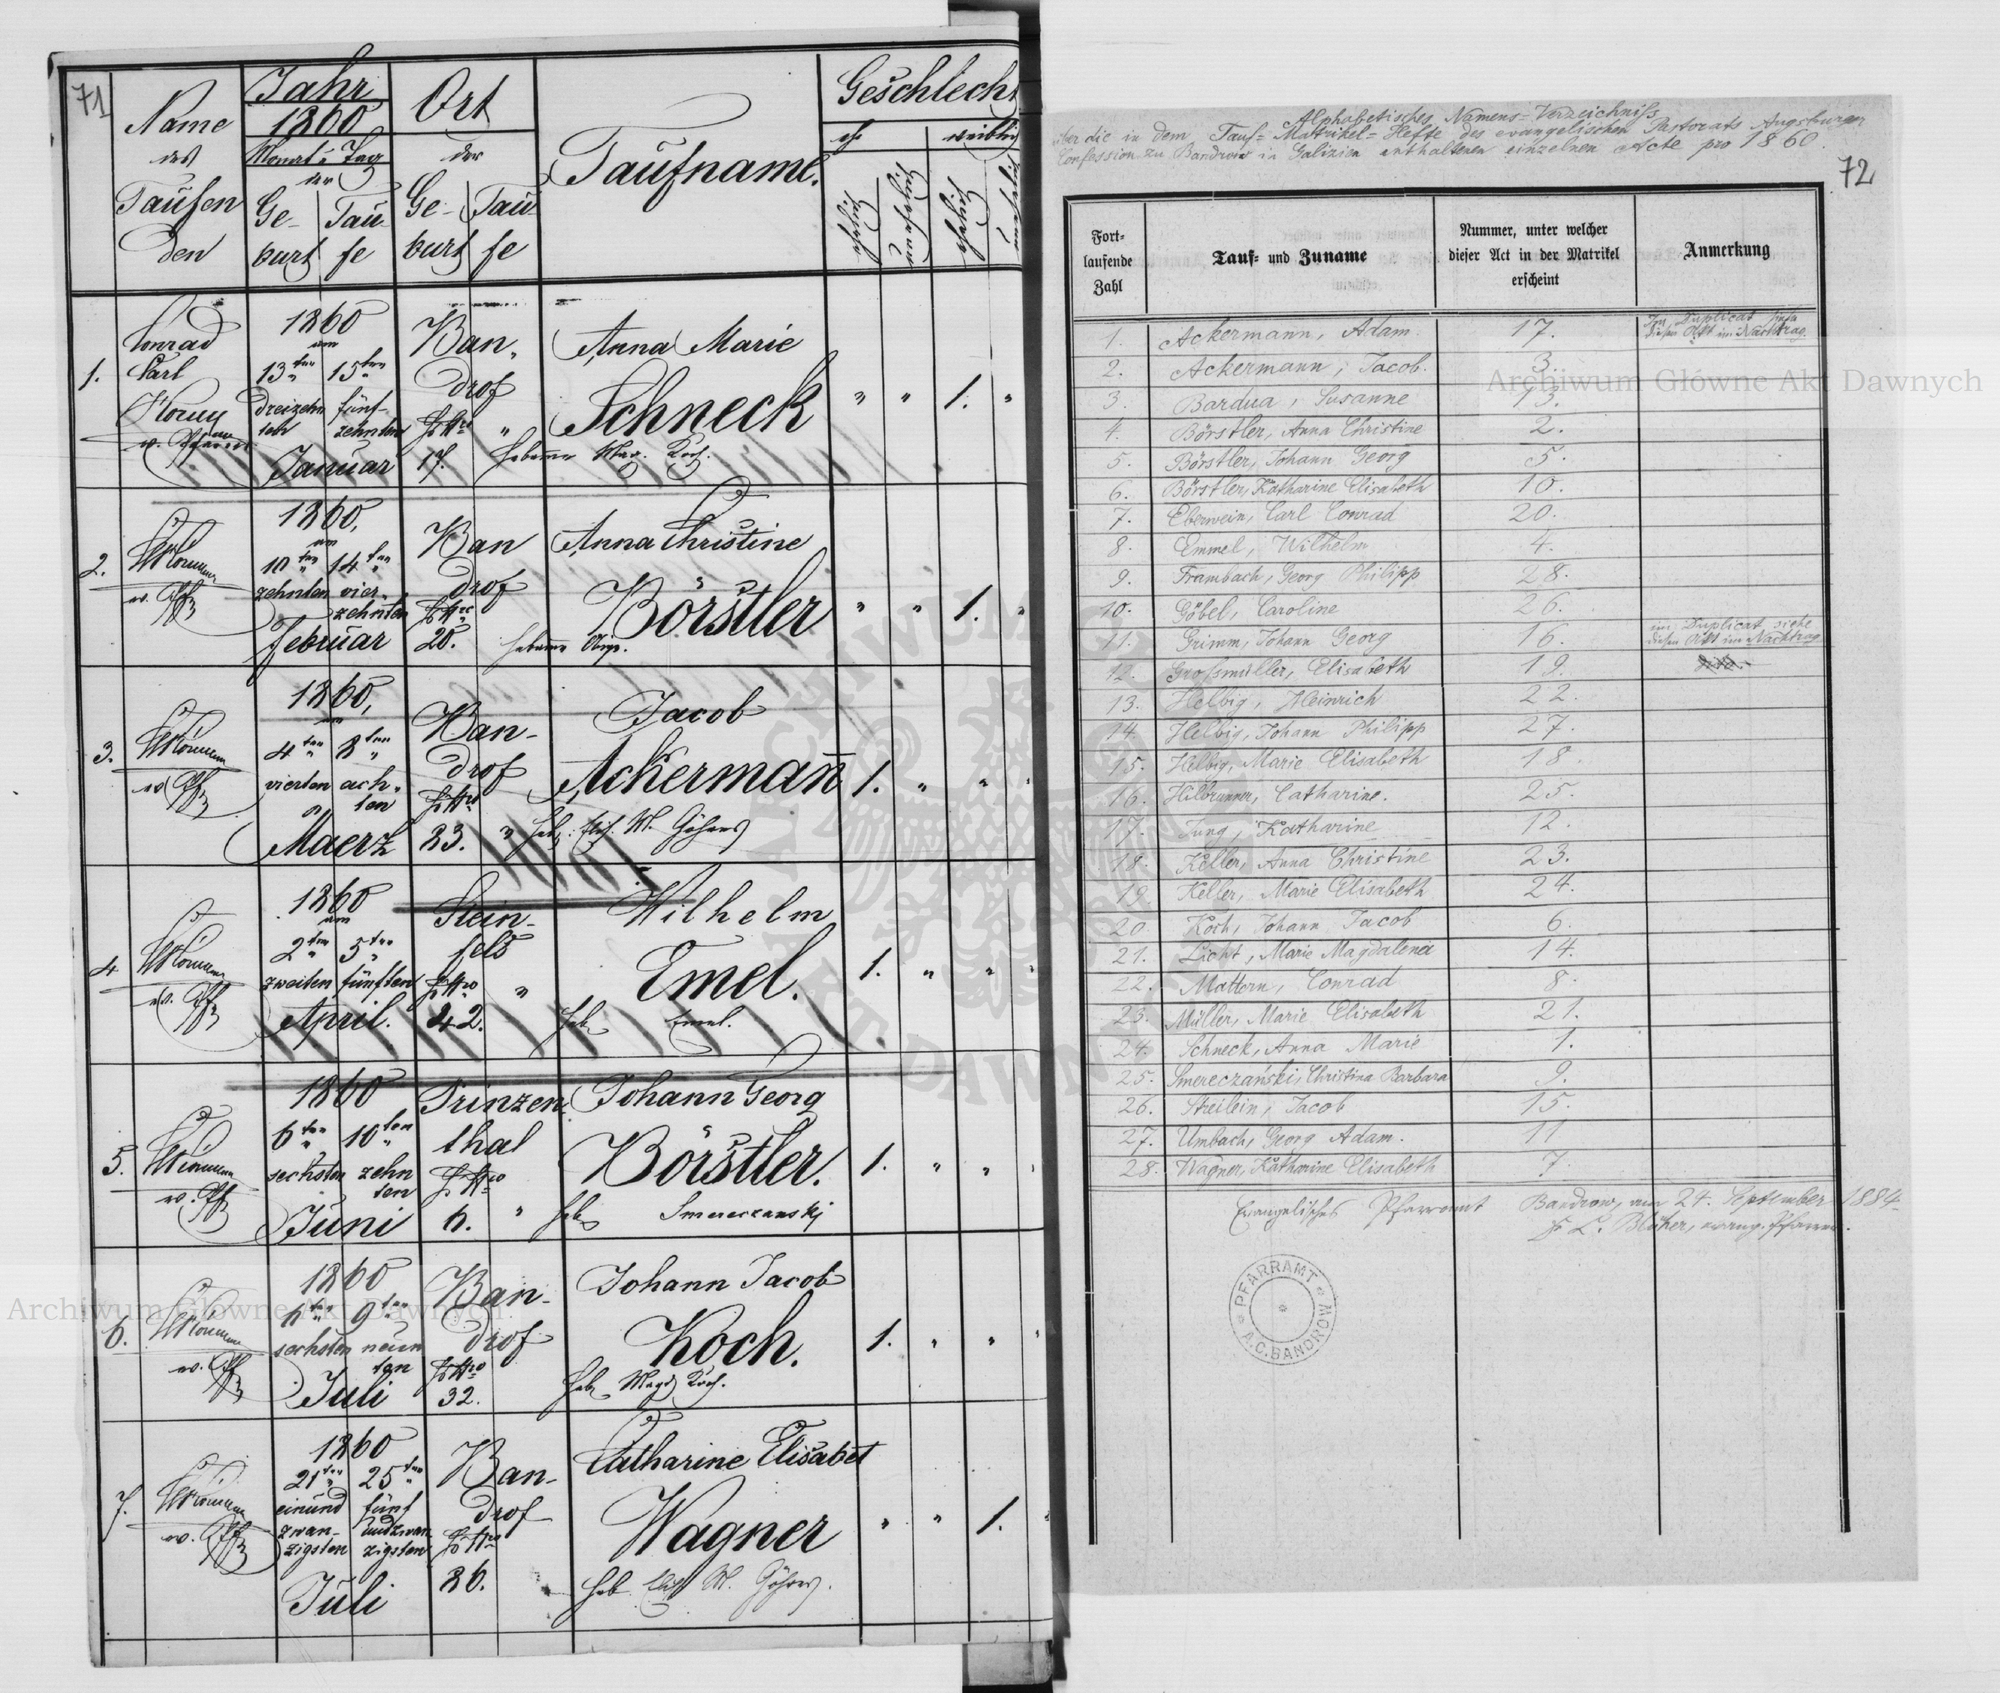 71
Name
des
Taufen
den
Jahr
1860
Monat u. Tag
der
Ge-
burt
Tau-
fe
Ort
der
Ge-
burt
Tau-
fe
Taufname.
Geschlecht
weiblich
1.
Conrad
Carl
1860
am
13ten 15ten
dreizehn fünf-
ten zehnten
Januar
Ban-
drof
17.
Anna Marie
Schneck
" " 1. "
2.
1860,
am
10ten 14ten
zehnten vier-
zehnten
Februar
Ban
drof
20.
Anna Christine
Börstler
" " 1. "
3.
1860,
am
4ten 8ten
vierten ach-
ten
Maerz
Ban-
drof
23.
Jacob
Ackermann
1. " "
4
1860
am
2ten 5ten
zweiten fünften
April.
Stein-
fels
42.
Wilhelm
Emel.
1. " "
5.
1860
6ten 10ten
sechsten zehn
ten
Juni
Prinzen-
thal
6.
Johann Georg
Börstler.
Smereczanski
1. " "
6.
1860
6ten 9ten
sechsten neun
ten
Juli
Ban-
drof
32.
Johann Jacob
Koch.
Heb. Magd. Koch.
1. " "
7.
1860
21ten 25ten
einund fünf
zwan- undzwan
zigsten zigsten
Juli
Ban-
drof
26.
Catharine Elisabet
Wagner
" " 1.
Alphabetisches Namens-Verzeichniss
über die in dem Tauf-Matrikel-Hefte des evangelischen Pastorats Augsburger
Confession zu Bandrow in Galizien enthaltenen einzelnen Acte pro 1860.
72
Fort-
laufende
Zahl
Tauf- und Zuname
Nummer, unter welcher
dieser Act in der Matrikel
erscheint
Anmerkung
1. Ackermann, Adam 17. Im Duplicat siehe
diesen Akt im Nachtrag.
2. Ackermann, Jacob. 3.
3. Bardua, Susanne 13.
4. Börstler, Anna Christine 2.
5. Börstler, Johann Georg 5.
6. Börstler, Katharine Elisabeth 10.
7. Eberwein, Carl Conrad 20.
8. Emmel, Wilhelm 4.
9. Frambach, Georg Philipp 28.
10. Göbel, Caroline 26.
11. Grimm, Johann Georg 16. im Duplicat siehe
diesen Akt im Nachtrag
12. Großmüller, Elisabeth 19.
13. Helbig, Heinrich 22.
14. Helbig, Johann Philipp 27.
15. Helbig, Marie Elisabeth 18.
16. Hilbrunner, Catharine. 25.
17. Jung, Katharine 12.
18. Keller, Anna Christine 23.
19. Keller, Marie Elisabeth 24.
20. Koch, Johann Jacob 6.
21. Licht, Marie Magdalena 14.
22. Mattern, Conrad 8.
23. Müller, Marie Elisabeth 21.
24. Schneck, Anna Marie 1.
25. Smereczański, Christina Barbara 9.
26. Streilein, Jacob 15.
27. Umbach, Georg Adam. 11
28. Wagner, Katharine Elisabeth 7.
Evangelisches Pfarramt Bandrow, am 24. September 1884
evang. Pfarrer.
PFARRAMT
A.C. BANDROW
Archiwum Główne Akt Dawnych
Archiwum Główne Akt Dawnych